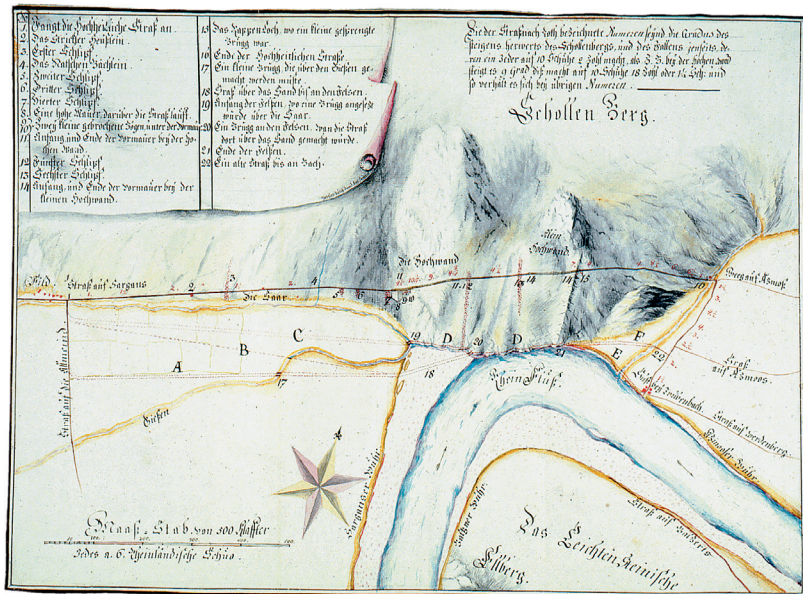 N.
1. Fangt die Hochheitliche Straß an.
2. Das Tricher Heüslein.
3. Erster Schlipf.
4. Das Natschen Bächlein.
5. Zweiter Schlipf.
6. Dritter Schlipf.
7. Vierter Schlipf.
8. Eine hohe Mauer, darüber die Straß laufft.
11. Anfang und Ende der Vormauer bey der Ho-
chen Wand.
12. Fünfter Schlipf.
13. Sechster Schlipf.
14. Anfang und Ende der Vormauer bey der
kleinen Hochwand.
15. Das Rappenloch, wo ein kleine gesprengte
Brügg war.
16. Ende der Hochheitlichen Straße.
17. Ein kleine Brügg, die über den Gießen ge-
macht werden müste.
18. Straß über das Land bis an den Felsen.
19. Anfang der Felsen, wo eine Brügg angelegt
würde über die Saar.
20. Ein Brügg an den Felsen, wan die Straß
dort über das Land gemacht würde.
21. Ende der Felsen.
22. Ein alte Straß bis an Bach.
Die der Straß nach roth bezeichnete Numeren seynd die Gradus des
steigens herwerts des Schollenbergs, und des Fallens jenseits, de-
ren ein jeder auf 10 Schuhe 2 Zohl macht, als z. B. bey der Hochen Wand
steigt es 9 Grad, diß macht auf 10 Schühe 18 Zohl oder 1½ Sch: und
so verhält es sich bey übrigen Numeren.
Schollen Berg.
Die Hochwand
Klein Hochwand
Straß auf Sargans
Die Saar
Straß auf die Allmeind
A B C D D E F
17 18 19 20 21 22
Gießen
Rhein Fluß.
Weeg auf Azmoß
Straß auf Azmoos.
Straß auf Werdenberg
Azmoser Wuhr
Sarganser Wuhr
Balzner Wuhr
Straß auf Balzers
Das Liechtensteinische
Ellberg.
Maaß-Stab von 500 Klaffter
Jedes a. 6. Rheinländische Schuo.